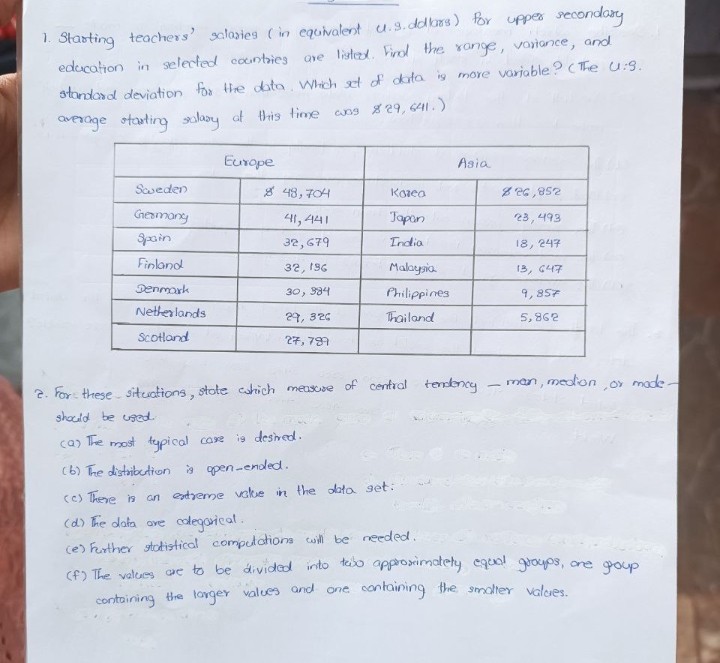 1. Starting teachers' salaries (in equivalent U.S. dollars) for upper secondary
education in selected countries are listed. Find the range, variance, and
standard deviation for the data. Which set of data is more variable? (The U.S.
average starting salary at this time was $29,641.)
Europe Asia
Sweden $ 48,704 Korea $26,852
Germany 41,441 Japan 23,493
Spain 32,679 India 18,247
Finland 32,136 Malaysia 13,647
Denmark 30,384 Philippines 9,857
Netherlands 29,326 Thailand 5,862
Scotland 27,789
2. For these situations, state which measure of central tendency — mean, median, or mode —
should be used.
(a) The most typical case is desired.
(b) The distribution is open-ended.
(c) There is an extreme value in the data set.
(d) The data are categorical.
(e) Further statistical computations will be needed.
(f) The values are to be divided into two approximately equal groups, one group
containing the larger values and one containing the smaller values.